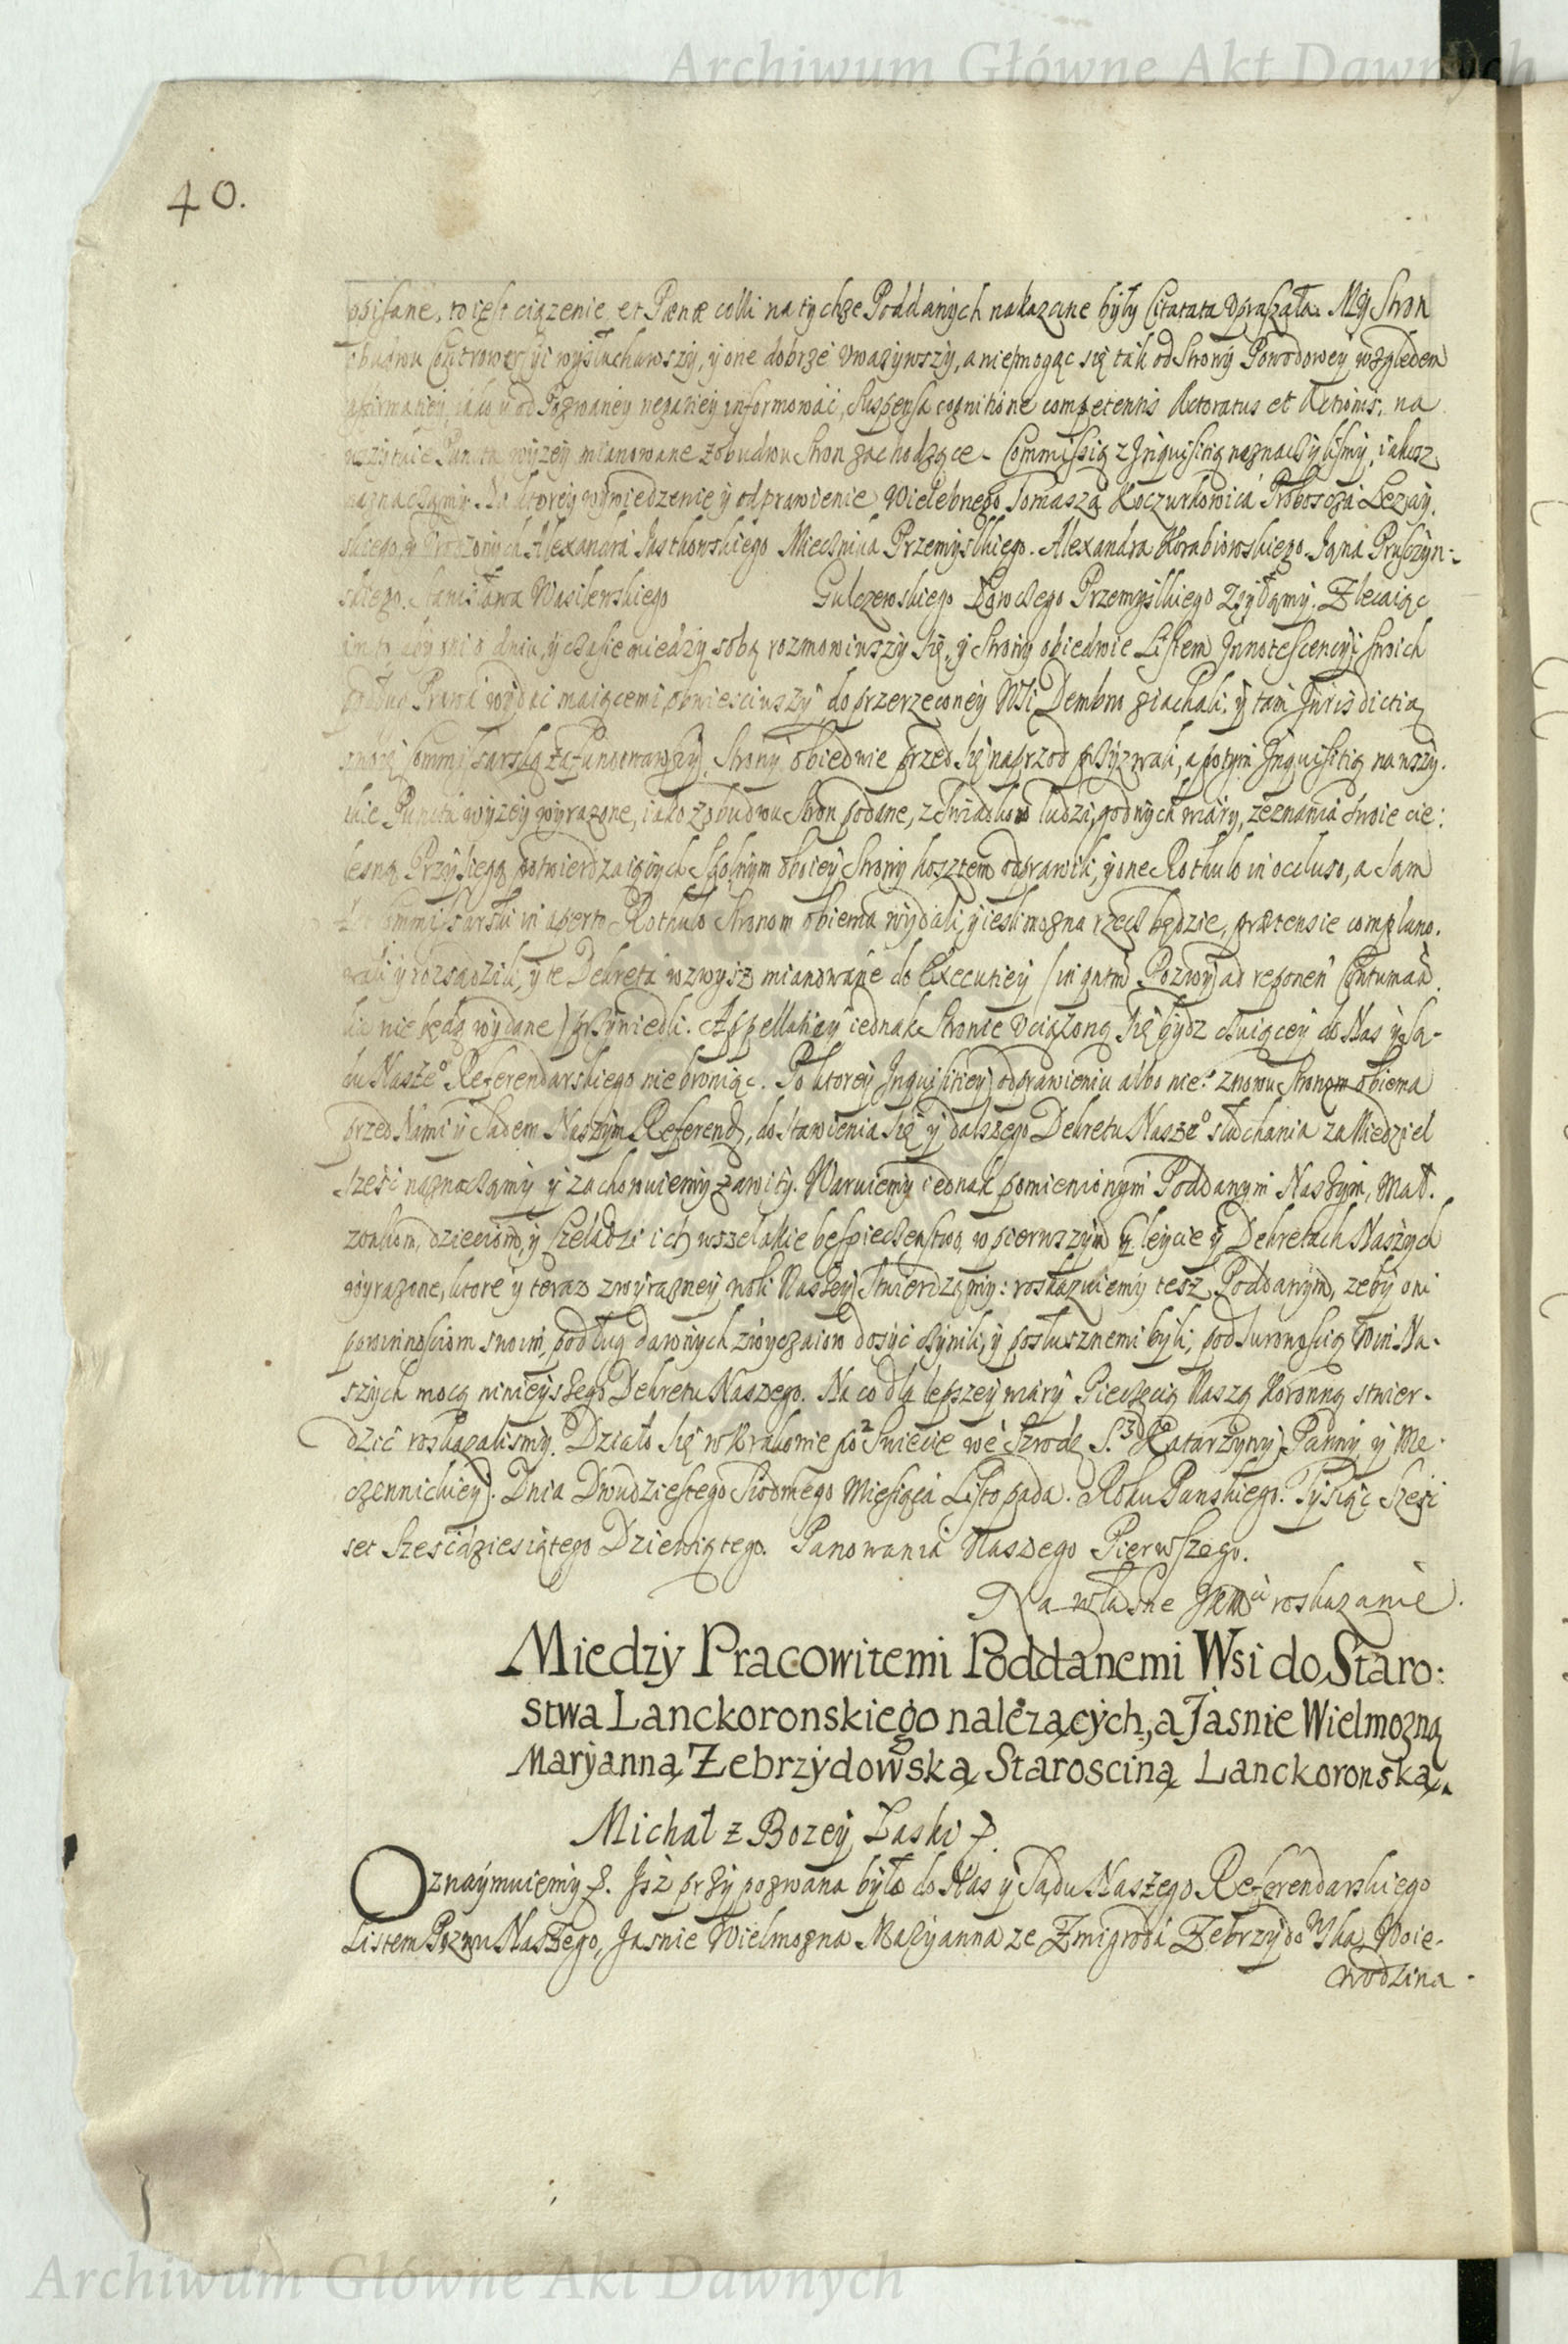 Archiwum Główne Akt Dawnych
40.
pisane, to iest ciązenie, et Pœnæ colli na tychże Poddanych nakazane były Citatata upraszała. My Stron
obudwu Controwersyi wysłuchawszy, y one dobrze uwazywszy, a niemogąc się tak od Strony Powodowey względem
affirmatiey, iako y od Pozwaney negatiey informować, Suspensa cognitione competentis Actoratus et Actionis, na
wszytkie Puncta wyzey mianowane z obudwu Stron zachodzące Commissią z Inquisitią naznaczylismy, iakosz
naznaczamy. Na ktorey wywiedzenie y odprawienie Wielebnego Tomasza Koczurkowica Proboscza Lezay,
skiego, y Urodzonych Alexandra Jastkowskiego Miecznika Przemyslkiego. Alexandra Korabiowskiego. Jana Prusczyn-
skiego. Stanisława Wasilewskiego Gulczewskiego Łowczego Przemyslkiego Zsyłamy. Zlecaiąc
im to, aby oni o dniu, y czasie miedzy sobą rozmowiwszy się, y Strony obiedwie Listem Innotescencyi swoich
podług Prawa wydać maiącemi, obwiesciwszy do przerzeconey Wsi Dembna ziachali: y tam Jurisdictią
swoię Commissarską zafundowawszy, Strony obiedwie przed się naprzod przyzwali, a potym Inquisitią na wszy.
tkie Puncta wyzey wyrazone, iako z obudwu Stron podane, z Swiadkow ludzi, godnych wiary, zeznania swoie cie:
lesną Przysięgą potwierdzaiących Spolnym oboiey Strony kosztem odprawili, y one Rothulo in occluso, a sam
Akt Commissarski in aperto Rothulo Stronom obiema wydali, y iesli mozna rzecz będzie, prætensie complano.
wali y rozsądzili, y te Dekreta wzwysz mianowane do Executiey (in qntm Pozwy ad reponen Contumac.
tia nie będą wydane) przywiedli. Appellatiey iednak Stronie uciązoną się bydz czuiącey do Nas y Są-
du Naszeo Referendarskiego nie broniąc. Po ktorey Inquisitiey odprawieniu albo nie: znowu Stronom obiema
przed Nami y Sądem Naszym Referend, do stawienia się y dalszego Dekretu Naszeo słuchania za Niedziel
Szesć naznaczamy y zachowuiemy zawity. Waruiemy iednak pomienionym Poddanym Naszym, Mał.
zonkom, dzieciom, y Czeladzi ich wszelakie bespieczenstwo, w pierwszym Gleycie y Dekretach Naszych
wyrazone, ktore y teraz z wyrazney woli Naszey stwierdzamy: roskazuiemy tesz Poddanym, zeby oni
powinnosciom swoim, podług dawnych zwyczaiow dosyć czynili, y posłusznemi byli; pod surowoscią win Na-
szych mocą ninieyszego Dekretu Naszego. Na co dla lepszey wiary Pieczęcią Naszą Koronną stwier-
dzić roskazalismy. Działo się w Krakowie po Swięcie we Szrodę S. Katarzyny Panny y Mę.
czenniczkiey. Dnia Dwudziestego Siodmego Miesiąca Listopada. Roku Panskiego. Tysiąc Szesć
set Szescdziesiątego Dziewiątego. Panowania Naszego Pierwszego.
Na własne JKMci roskazanie.
Miedzy Pracowitemi Poddanemi Wsi do Staro:
stwa Lanckoronskiego nalezących, a Jasnie Wielmozną
Maryanną Zebrzydowską Starosciną Lanckoronską.
Michał z Bozey Łaski p.
Oznaymuiemy p. Isz przypozwana była do Nas y Sądu Naszego Referendarskiego
Listem Pozwu Naszego, Jasnie Wielmozna Maryanna ze Zmigroda Zebrzydowska Woie-
wodzina
Archiwum Główne Akt Dawnych